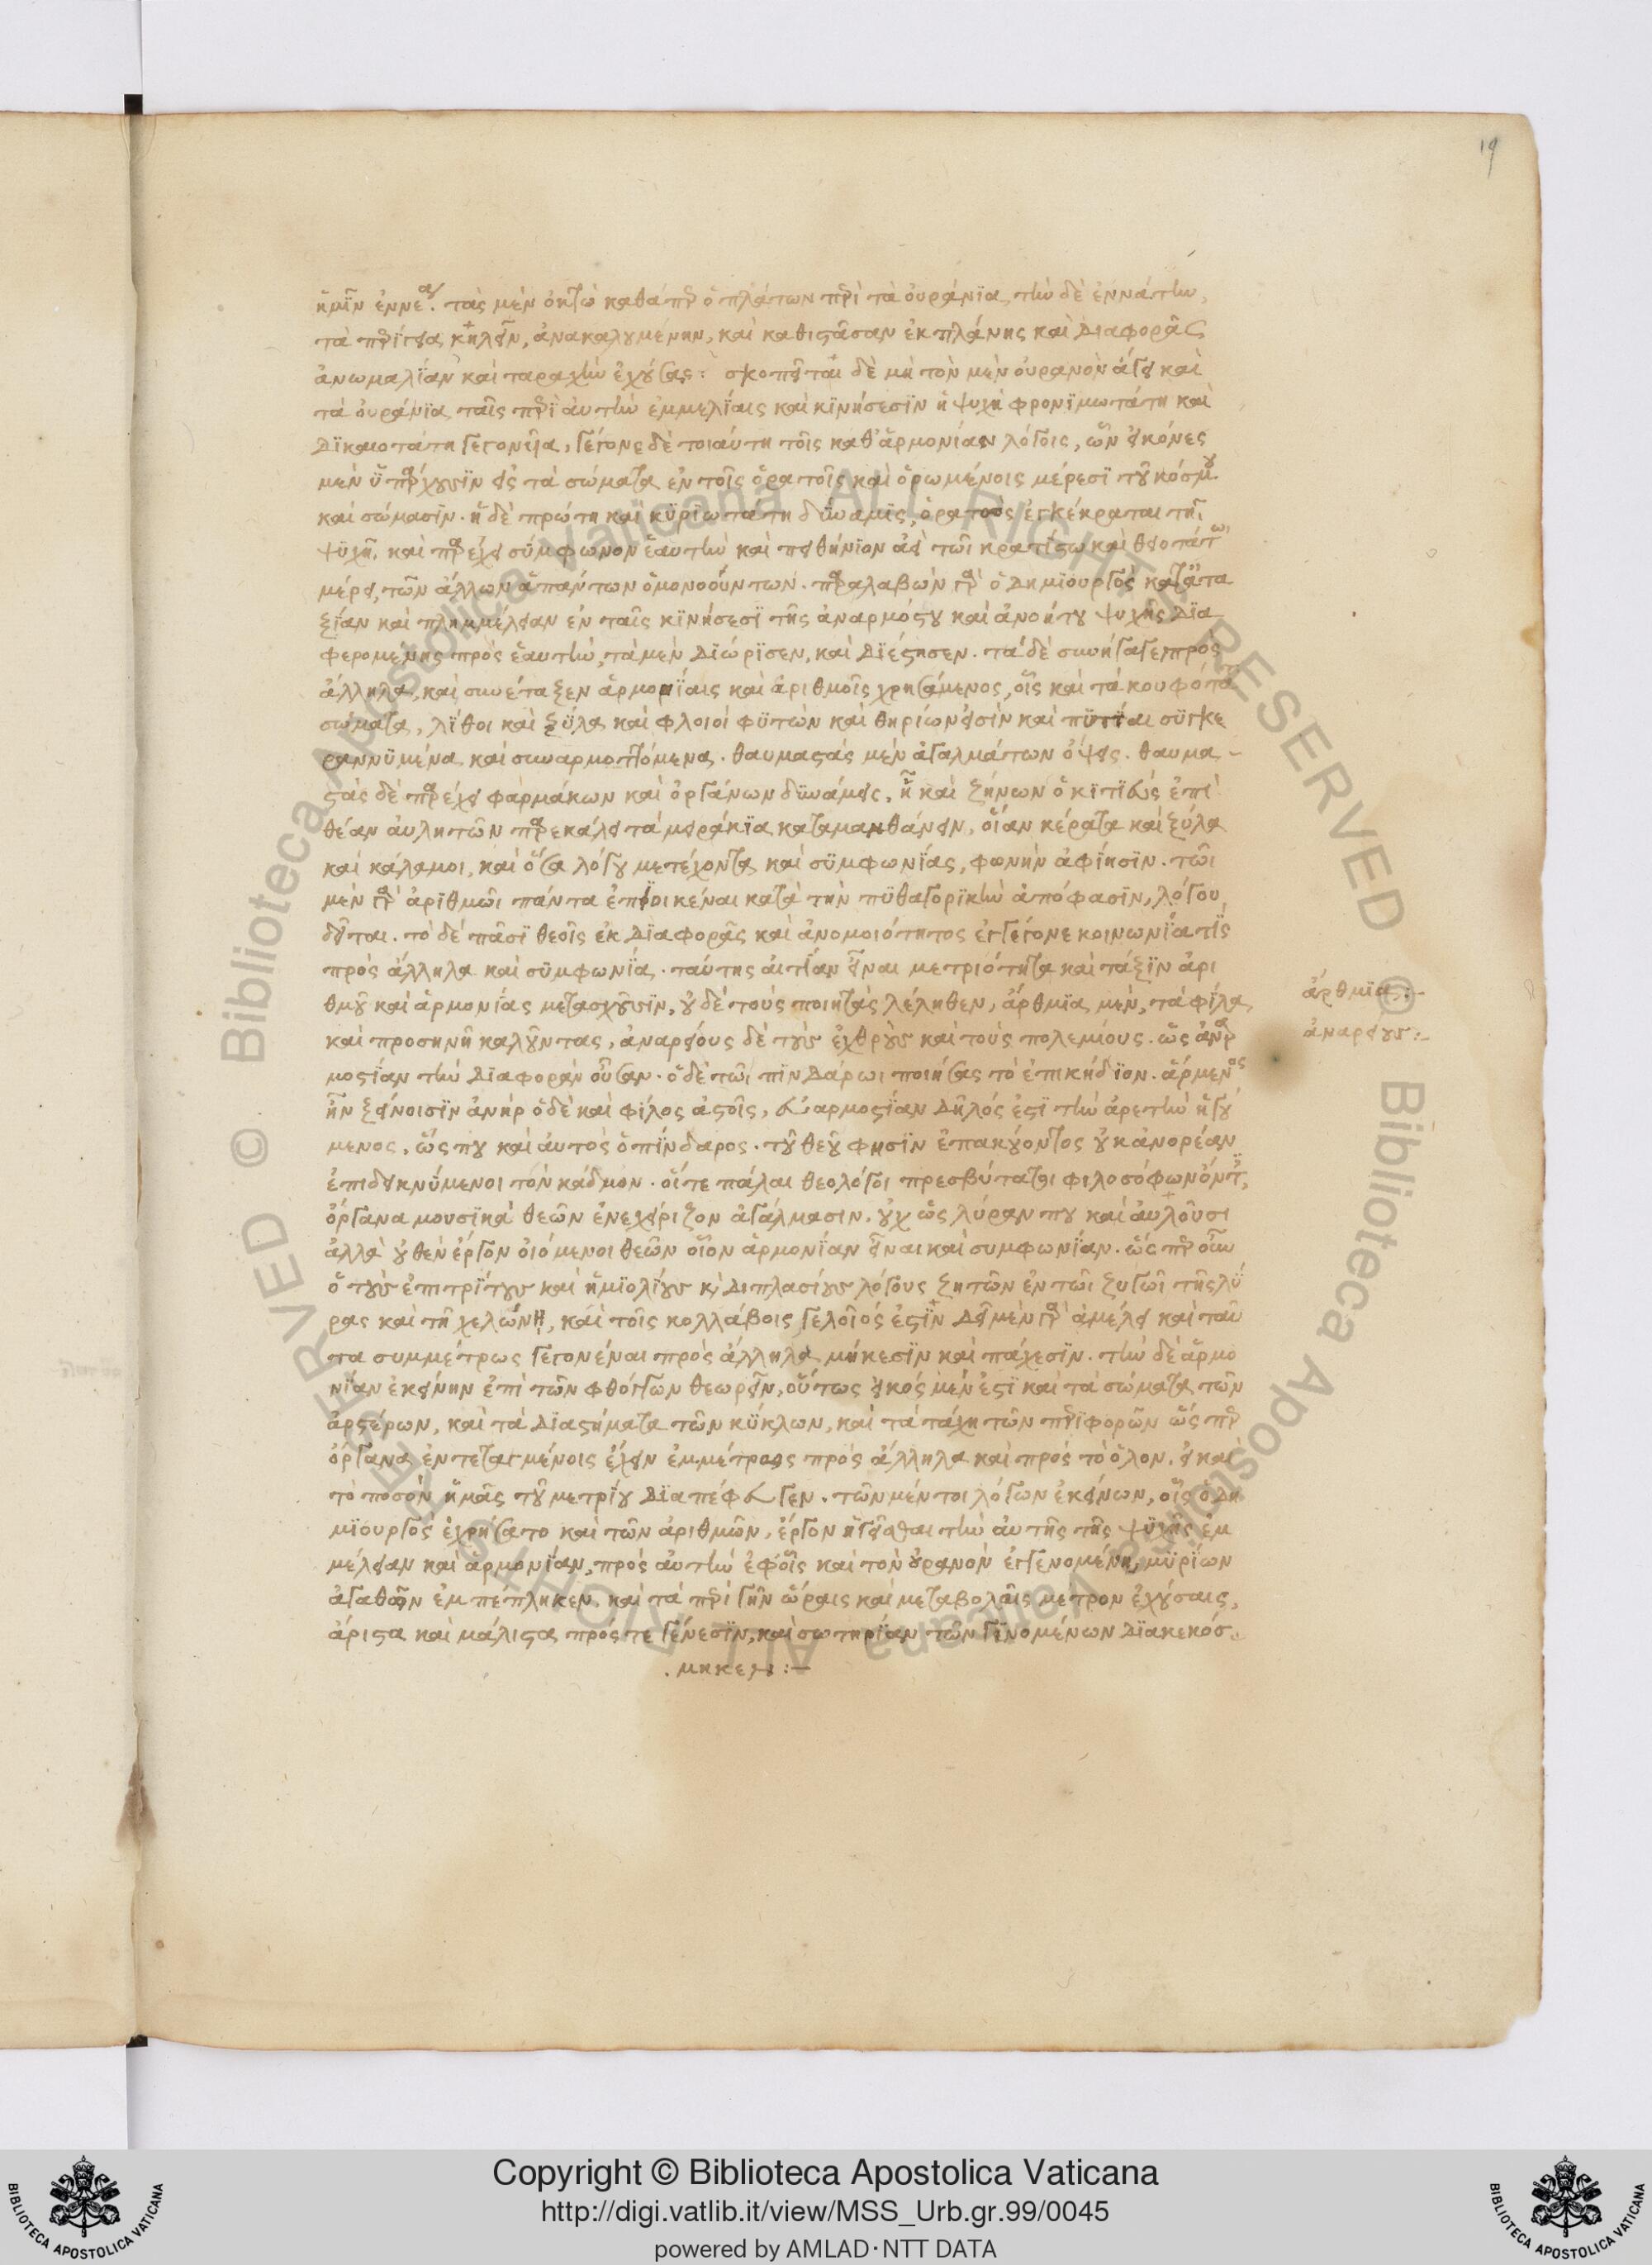 ἡμῖν ἐννέα. τὰς μὲν ὀκτὼ καθάπερ ὁ πλάτων περὶ τὰ οὐράνια, τὴν δὲ ἐννάτην,
τὰ περίγεια κηλεῖν, ἀνακαλουμένην, καὶ καθιστᾶσαν ἐκ πλάνης καὶ διαφορᾶς
ἀνωμαλίαν καὶ ταραχὴν ἐχούσας: σκοπεῖται δὲ μὴ τὸν μὲν οὐρανὸν ἄγει καὶ
τὰ οὐράνια ταῖς περὶ αὐτὴν ἐμμελίαις καὶ κινήσεσιν ἡ ψυχὴ φρονιμωτάτη καὶ
δικαιοτάτη γεγονῆα, γέγονε δὲ τοιαύτη τοῖς καθ' ἁρμονίαν λόγοις, ὧν εἰκόνες
μὲν ὑπάρχουσιν εἰς τὰ σώματα ἐν τοῖς ὁρατοῖς καὶ ὁρωμένοις μέρεσι τοῦ κόσμου
καὶ σώμασιν. ἡ δὲ πρώτη καὶ κυριωτάτη δύναμις, ὁρατοὺς ἐγκέκραται τῆι
ψυχῆ, καὶ παρέχει σύμφωνον ἑαυτὴν καὶ πειθήνιον ἀεὶ τῶι κρατίστω καὶ θειοτάτωι
μέρει, τῶν ἄλλων ἁπάντων ὁμονοούντων. παραλαβὼν γὰρ ὁ δημιουργὸς καὶ ἀτα
ξίαν καὶ πλημμέλειαν ἐν ταῖς κινήσεσι τῆς ἀναρμόστου καὶ ἀνοήτου ψυχῆς δια
φερομένης πρὸς ἑαυτὴν, τὰ μὲν διώρισεν, καὶ διέστησεν. τὰ δὲ συνήγαγε πρὸς
ἄλληλα, καὶ συνέταξεν ἁρμονίαις καὶ ἀριθμοῖς χρησάμενος, οἷς καὶ τὰ κουφότατα
σώματα, λίθοι καὶ ξύλα καὶ φλοιοὶ φυτῶν καὶ θηρίων εἰσὶν καὶ πυτίαι συγκε
ραννύμενα καὶ συναρμοττόμενα. θαυμαστὰς μὲν ἀγαλμάτων ὄψεις. θαυμα-
στὰς δὲ παρέχει φαρμάκων καὶ ὀργάνων δυνάμεις, ἧ καὶ ζήνων ὁ κιτιεὺς ἐπὶ
θέαν αὐλητῶν παρεκάλει τὰ μειράκια καταμανθάνειν, οἵαν κέρατα καὶ ξύλα
καὶ κάλαμοι, καὶ ὅσα λόγου μετέχοντα καὶ συμφωνίας, φωνὴν ἀφίησιν. τῶι
μὲν γὰρ ἀριθμῶι πάντα ἐπεοικέναι κατὰ τὴν πυθαγορικὴν ἀπόφασιν, λόγου
δεῖται. τὸ δὲ πᾶσι θεοῖς ἐκ διαφορᾶς καὶ ἀνομοιότητος ἐγγέγονε κοινωνία τὶς
πρὸς ἄλληλα καὶ συμφωνία. ταύτης αἰτίαν εἶναι μετριότητα καὶ τάξιν ἀρι
θμοῦ καὶ ἁρμονίας μετασχοῦσιν, οὐδὲ τοὺς ποιητὰς λέληθεν, ἄρθμια μὲν, τὰ φίλα
καὶ προσηνῆ καλοῦντας, ἀναρσίους δὲ τοὺς ἐχθροὺς καὶ τοὺς πολεμίους. ὡς ἀναρ
μοστίαν τὴν διαφορὰν οὖσαν. ὁ δὲ τῶι πινδάρωι ποιήσας τὸ ἐπικήδιον. ἄρμενος
ἦν ξείνοισιν ἀνὴρ ὁδὲ καὶ φίλος ἀστοῖς, εὐαρμοστίαν δῆλός ἐστι τὴν ἀρετὴν ἡγού
μενος. ὥς που καὶ αὐτὸς ὁ πίνδαρος. τοῦ θεοῦ φησὶν ἐπακούοντος οὐκ ἀνορέαν
ἐπιδεικνύμενοι τὸν κάδμον. οἵτε πάλαι θεολόγοι πρεσβύτατοι φιλοσόφων ὄντες,
ὄργανα μουσικὰ θεῶν ἐνεχείριζον ἀγάλμασιν. οὐχ ὡς λύραν που καὶ αὐλοῦσι
ἀλλὰ οὐθὲν ἔργον οἰόμενοι θεῶν οἷον ἁρμονίαν εἶναι καὶ συμφωνίαν. ὥς περ οὖν
ὁ τοὺς ἐπιτρίτους καὶ ἡμιολίους κ διπλασίους λόγους ζητῶν ἐν τῶι ζυγῶι τῆς λύ
ρας καὶ τῆ χελώνη, καὶ τοῖς κολλάβοις γελοῖός ἐστιν δεῖ μὲν γὰρ ἀμέλει καὶ ταῦ
τα συμμέτρως γεγονέναι πρὸς ἄλληλα μήκεσιν καὶ πάχεσιν. τὴν δὲ ἁρμο
νίαν ἐκείνην ἐπὶ τῶν φθόγγων θεωρεῖν, οὕτως εἰκὸς μέν ἐστι καὶ τὰ σώματα τῶν
ἀρστέρων, καὶ τὰ διαστήματα τῶν κύκλων, καὶ τὰ τάχη τῶν περιφορῶν ὥς περ
ὄργανα ἐν τεταγμένοις ἔχειν ἐμμέτρως πρὸς ἄλληλα καὶ πρὸς τὸ ὅλον. εἰ καὶ
τὸ ποσὸν ἡμᾶς τοῦ μετρίου διαπέφευγεν. τῶν μέντοι λόγων ἐκείνων, οἷς ὁ δη
μιουργὸς ἐχρήσατο καὶ τῶν ἀριθμῶν, ἔργον ἡγεῖσθαι τὴν αὐτῆς τῆς ψυχῆς ἐμ
μέλειαν καὶ ἁρμονίαν, πρὸς αὐτὴν ἐφ' οἷς καὶ τὸν οὐρανὸν ἐγγενομένη, μυρίων
ἀγαθῶν ἐμπέπληκεν, καὶ τὰ περὶ γῆν ὥραις καὶ μεταβολαῖς μέτρον ἐχούσαις,
ἄριστα καὶ μάλιστα πρός τε γένεσιν, καὶ σωτηρίαν τῶν γινομένων διακεκόσ
μηκεν:—
ἄρθμια:-
ἀναρσίους:-
19
Copyright © Biblioteca Apostolica Vaticana
http://digi.vatlib.it/view/MSS_Urb.gr.99/0045
powered by AMLAD·NTT DATA
BIBLIOTECA APOSTOLICA VATICANA
BIBLIOTECA APOSTOLICA VATICANA
© Biblioteca Apostolica Vaticana ALL RIGHTS RESERVED © Biblioteca Apostolica Vaticana ALL RIGHTS RESERVED